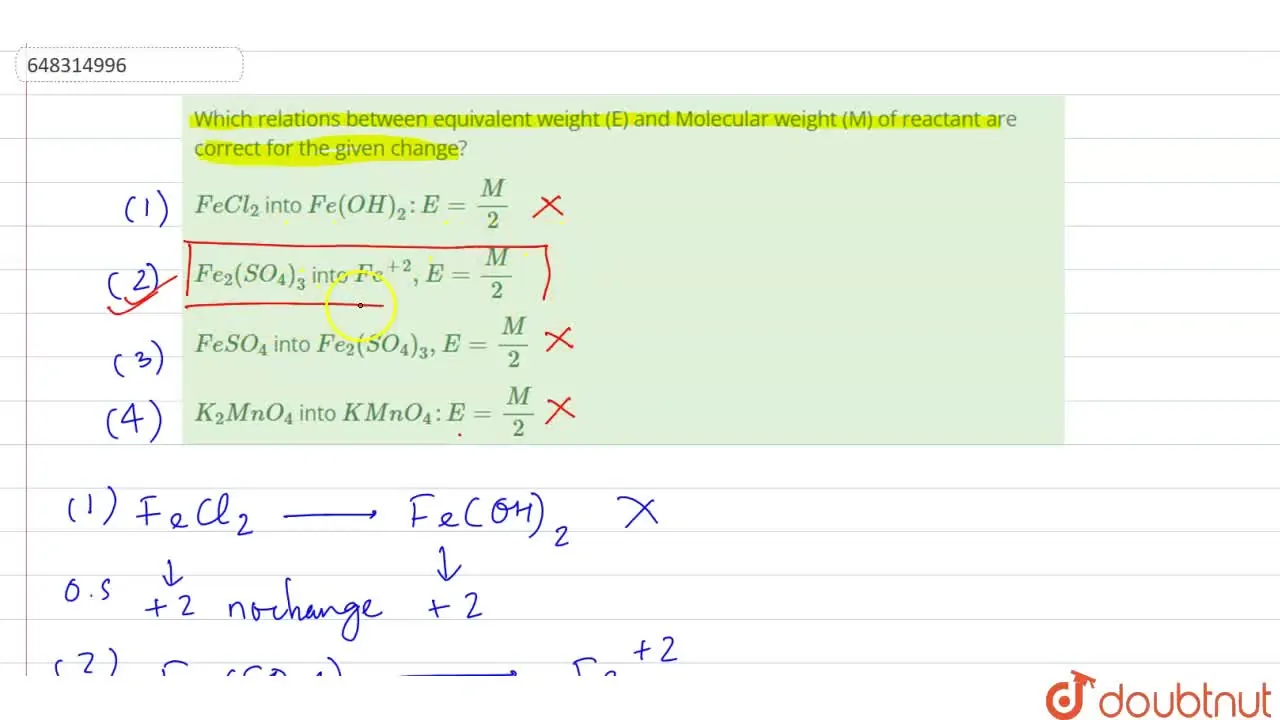 648314996
Which relations between equivalent weight (E) and Molecular weight (M) of reactant are
correct for the given change?
(1) FeCl₂ into Fe(OH)₂: E = M/2 ×
(2) Fe₂(SO₄)₃ into Fe⁺², E = M/2
(3) FeSO₄ into Fe₂(SO₄)₃, E = M/2 ×
(4) K₂MnO₄ into KMnO₄: E = M/2 ×
(1) FeCl₂ → Fe(OH)₂ ×
↓ ↓
O.S +2 nochange +2
(2) → Fe⁺²
doubtnut